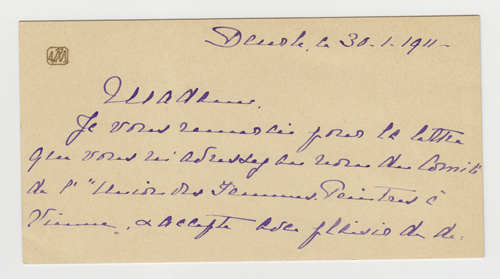 le 30.1.1911-
Madame.
Je vous remercie pour la lettre
que vous m'adressez au nom du Comité
de l'"Union des Femmes Peintres à
Vienne, & accepte avec plaisir de de-